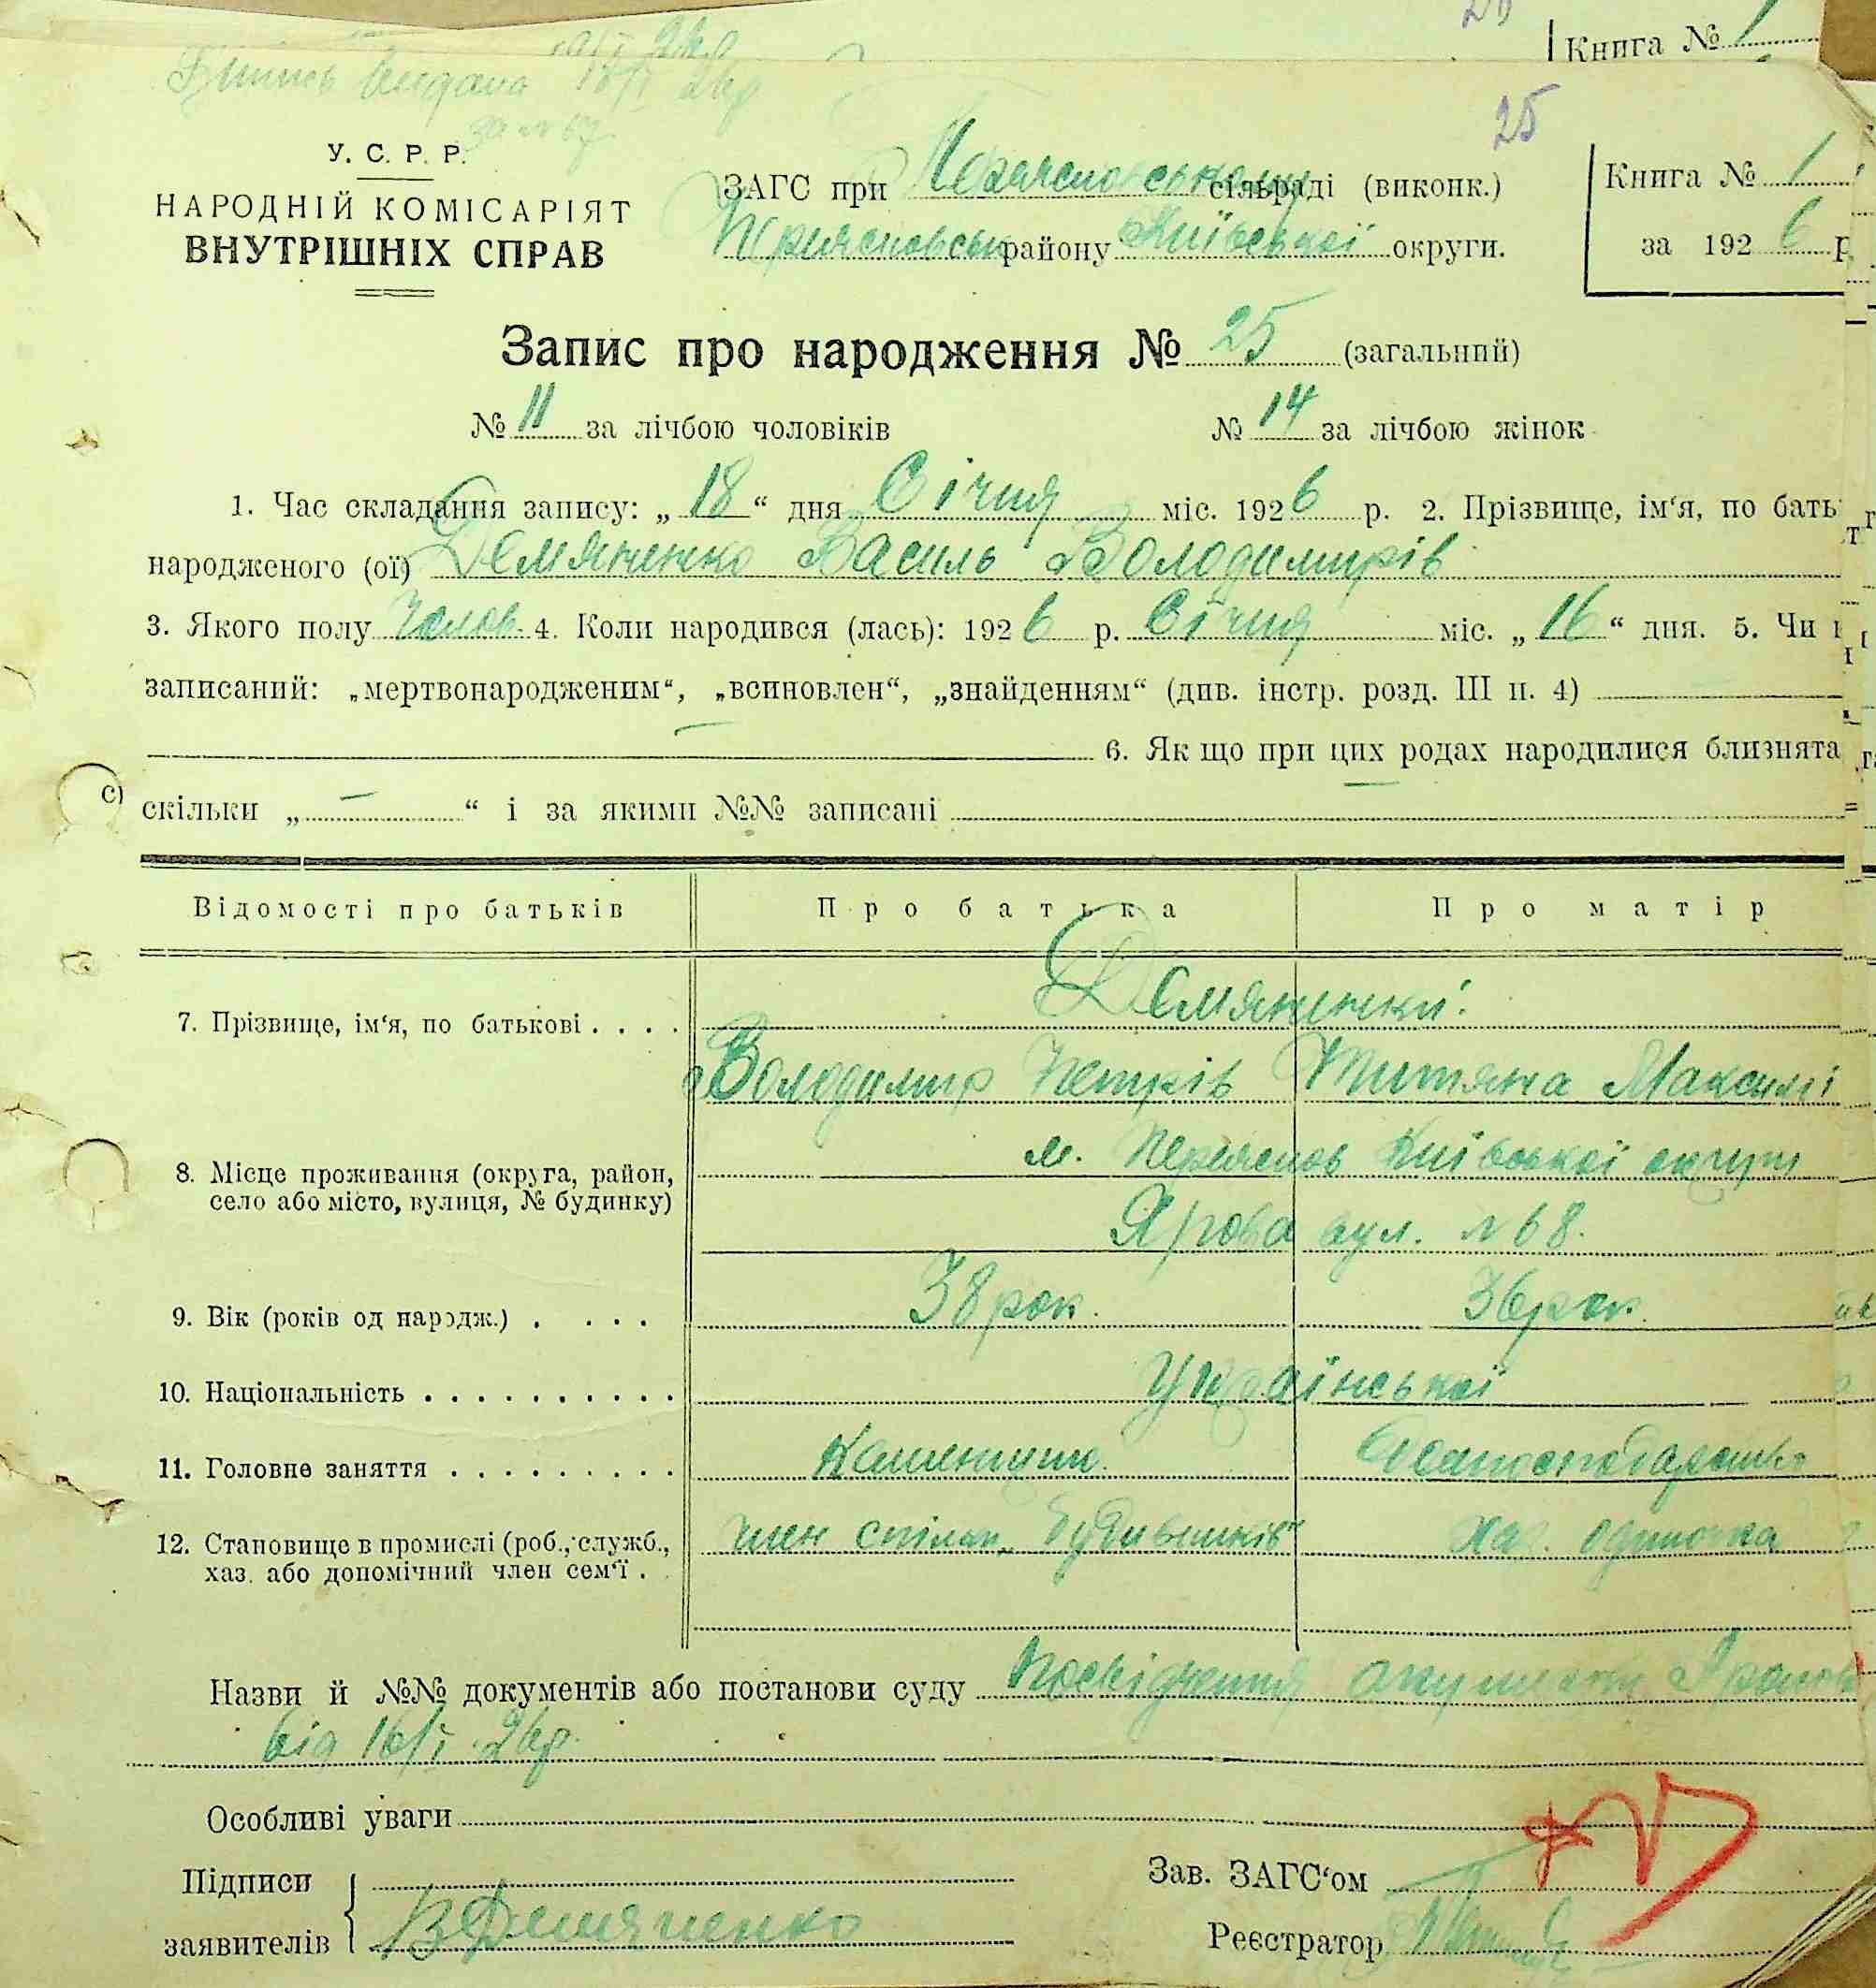 20
Книга № 1
видана 18/I 26р
за № 67
25
У. С. Р. Р.
НАРОДНІЙ КОМІСАРІЯТ
ВНУТРІШНІХ СПРАВ
ЗАГС при Переяславському сільраді (виконк.)
району Київської округи.
Книга № 1
за 192 6 р
Запис про народження № 25 (загальний)
№ 11 за лічбою чоловіків № 14 за лічбою жінок
1. Час складання запису: „ 18 “ дня Січня міс. 192 6 р. 2. Прізвище, ім‘я, по бать
народженого (ої) Демяненко Василь Володимирів
3. Якого полу Чолов. 4. Коли народився (лась): 192 6 р. Січня міс. „ 16 “ дня. 5. Чи
записаний: „мертвонародженим“, „всиновлен“, „знайденням“ (див. інстр. розд. III п. 4)
6. Як що при цих родах народилися близнята
скільки „ — “ і за якими №№ записані
Відомості про батьків Про батька Про матір
7. Прізвище, ім‘я, по батькові . . . . Демяненки.
Володимир Петрів Титяна Максимі
8. Місце проживання (округа, район, м. Переяслов Київської округи
село або місто, вулиця, № будинку)
Ярова вул. № 68.
9. Вік (років од народж.) . . . . 38 рок. 36 рок.
10. Національність . . . . . . . . . . Української
11. Головне заняття . . . . . . . . . Каменщик.
12. Становище в промислі (роб., служб., член спілки „Будівельників“ одиночка
хаз. або допомічний член сем‘ї .
Назви й №№ документів або постанови суду Посвідчення акушерки
від 16/I 26р.
Особливі уваги
Підписи Зав. ЗАГС‘ом
заявителів ВДемяненко Реєстратор